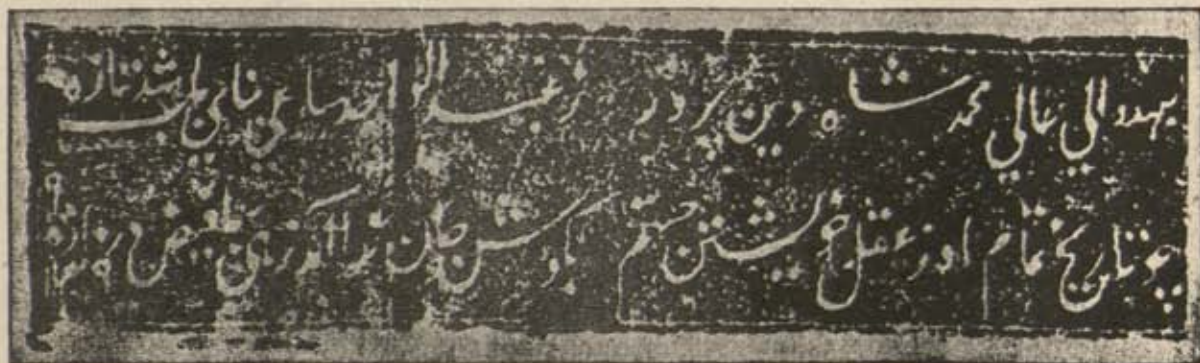 بعهد والی عالی محمد شاه دین پرور ز عبدالواحد ساعی بنای باب شد تازه
چو تاریخ تمام او ز عقل خویشتن جستم بگوش جان ندا آمد زهی دروازه